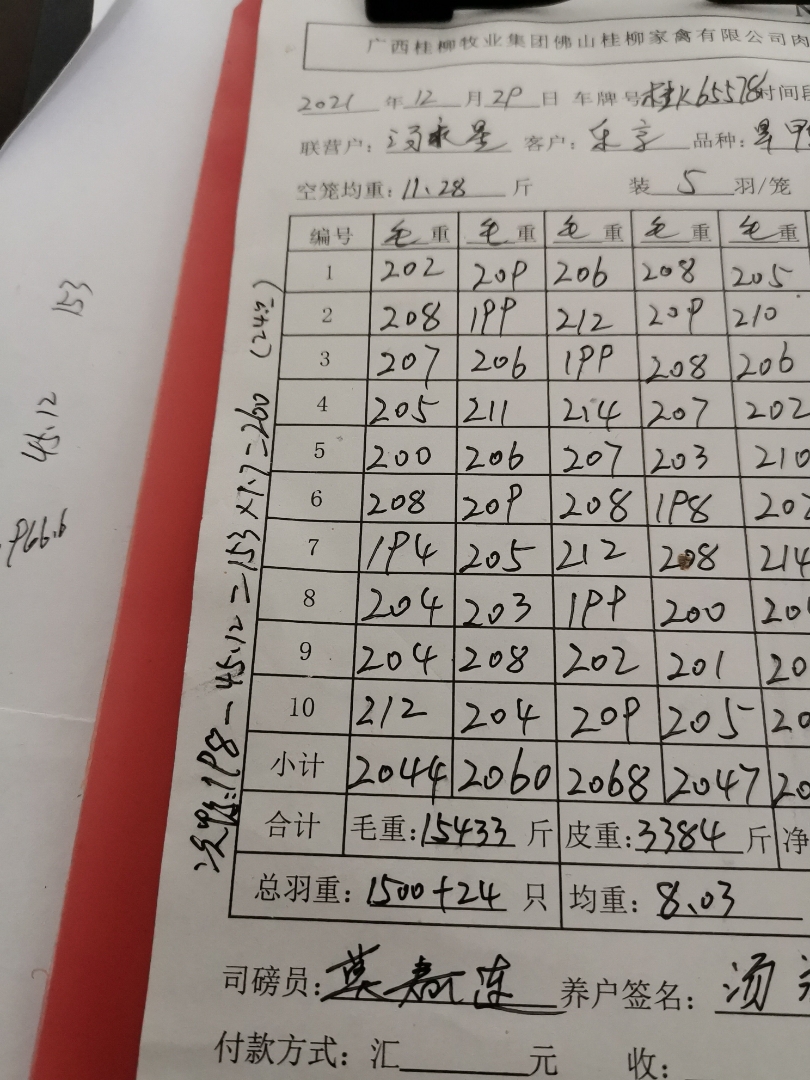 广西桂柳牧业集团佛山桂柳家禽有限公司肉
2021 年 12 月 29 日 车牌号 桂K65578 时间段
联营户： 客户：乐享 品种：
空笼均重：11.28 斤 装 5 羽/笼
编号 毛重 毛重 毛重 毛重 毛重
1 202 209 206 208 205
2 208 199 212 209 210
3 207 206 199 208 206
4 205 211 214 207 202
5 200 206 207 203 210
6 208 209 208 198 202
7 194 205 212 208 214
8 204 203 199 200 20
9 204 208 202 201 20
10 212 204 209 205 20
小计 2044 2060 2068 2047 20
合计 毛重：15433 斤 皮重：3384 斤 净
总羽重：1500+24 只 均重：8.03
司磅员： 养户签名：汤
付款方式：汇 元 收：
198-45.12=153×1.7=260 (24只)
153
45.12
966.6